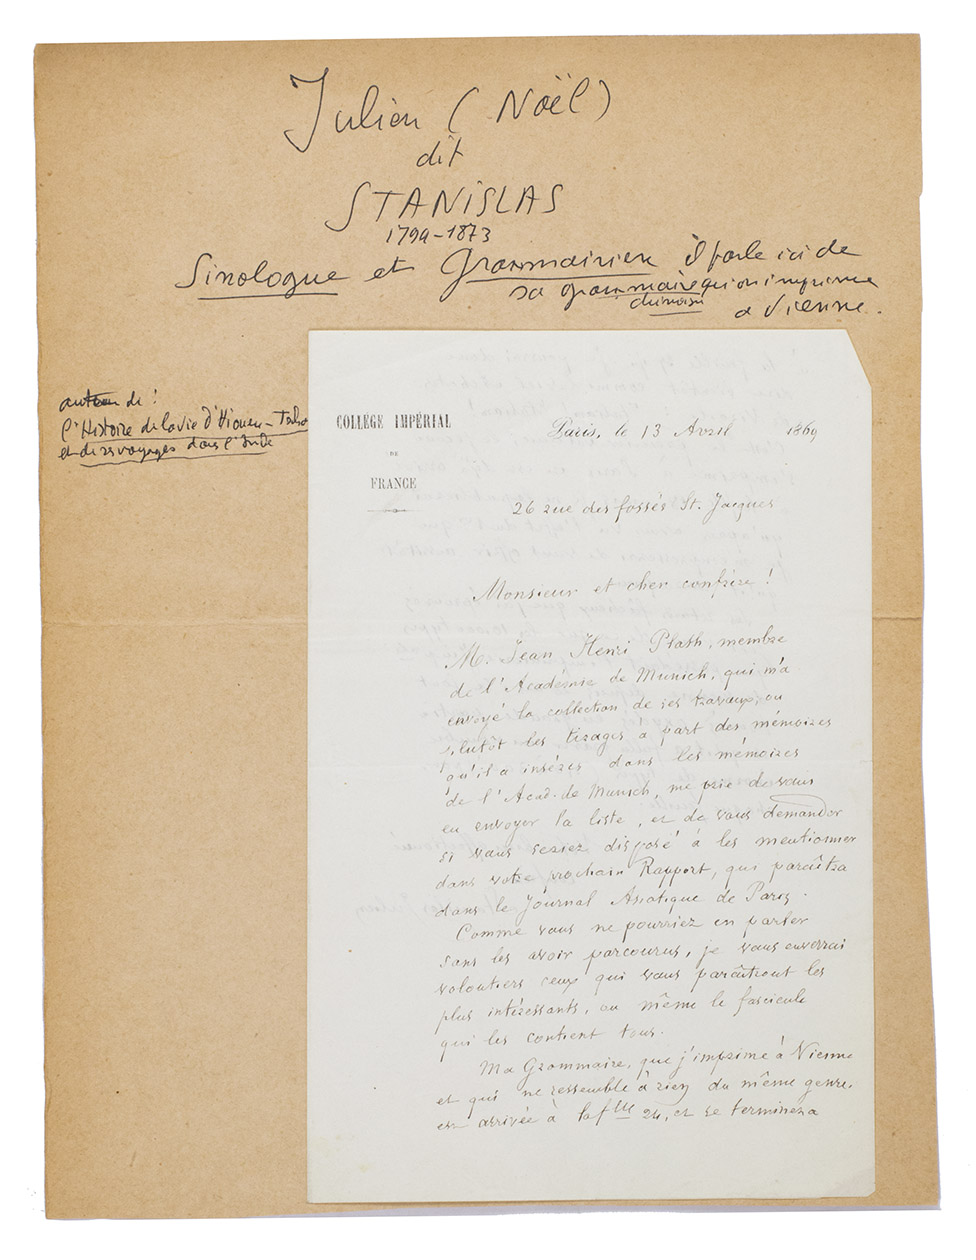 Julien (Noël)
dit
STANISLAS
1799-1873
Sinologue et Grammairien il parle ici de
sa grammaire qu'on imprime
chinoise
a Vienne.
auteur de :
l'Histoire de la vie d'Hiouen-Thsang
et de ses voyages dans l'Inde
COLLÈGE IMPÉRIAL
DE
FRANCE
Paris, le 13 Avril 1869
26 rue des fossés St. Jacques
Monsieur et cher confrère !
M. Jean Henri Plath, membre
de l'Académie de Munich, qui m'a
envoyé la collection de ses travaux, ou
plutôt les tirages à part des mémoires
qu'il a insérés dans les mémoires
de l'Acad. de Munich, me prie de vous
en envoyer la liste, et de vous demander
si vous seriez disposé à les mentionner
dans votre prochain Rapport, qui paraîtra
dans le Journal Asiatique de Paris.
Comme vous ne pourriez en parler
sans les avoir parcourus, je vous enverrai
volontiers ceux qui vous paraîtront les
plus intéressants, ou même le fascicule
qui les contient tous.
Ma Grammaire, que j'imprime à Vienne
et qui ne ressemble à rien du même genre,
est arrivée à la flle 24, et se terminera